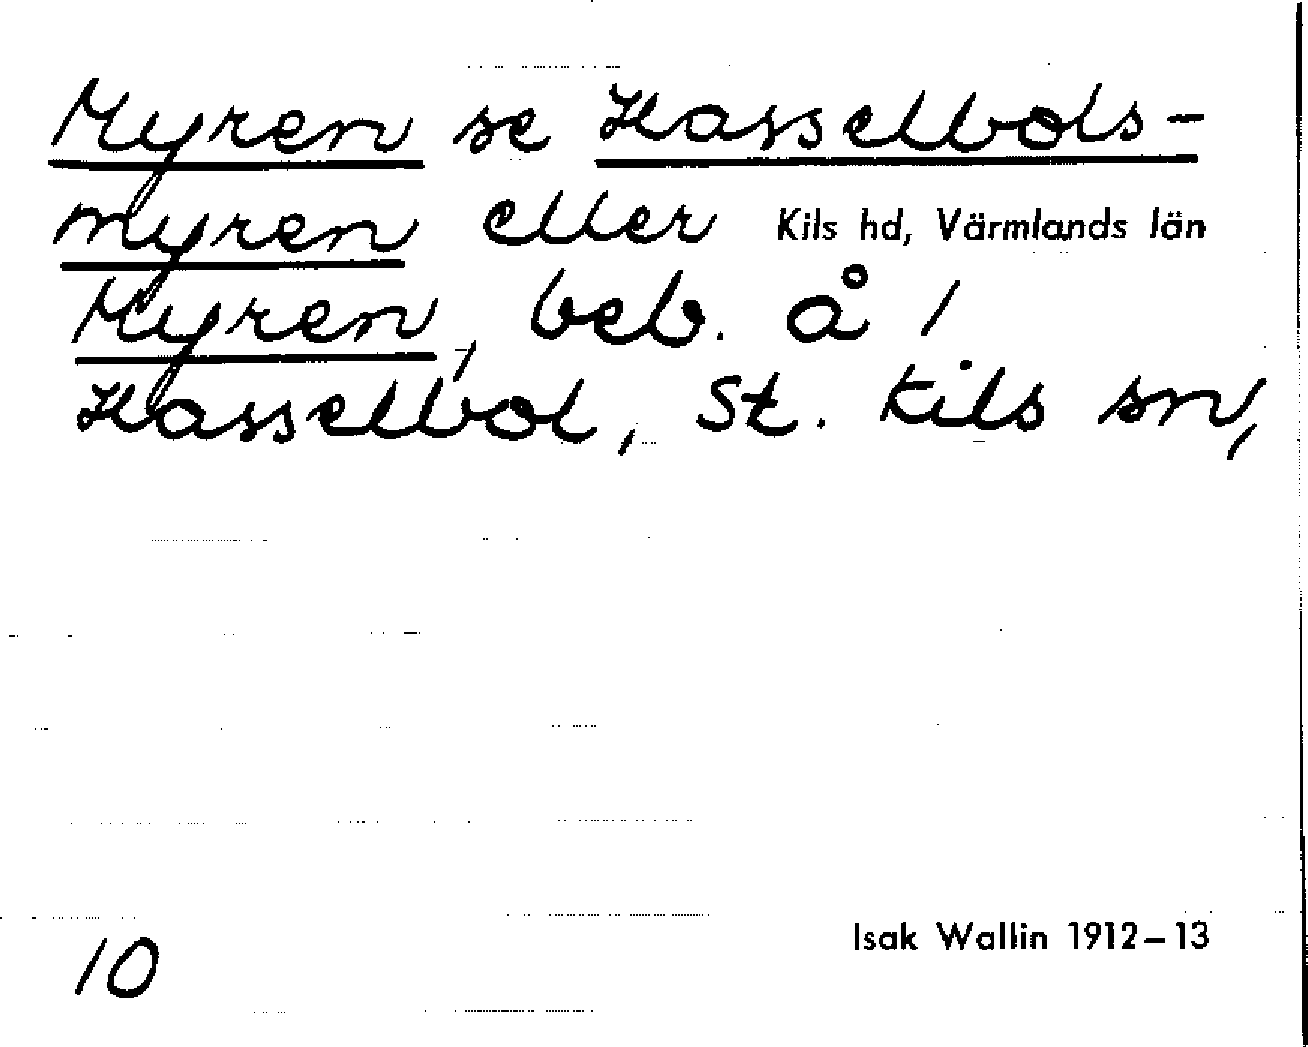 Myren se Hasselbols-
myren eller Kils hd, Värmlands län
Myren, beb. å /
Hasselbol, St. Kils sn,
10
Isak Wallin 1912–13